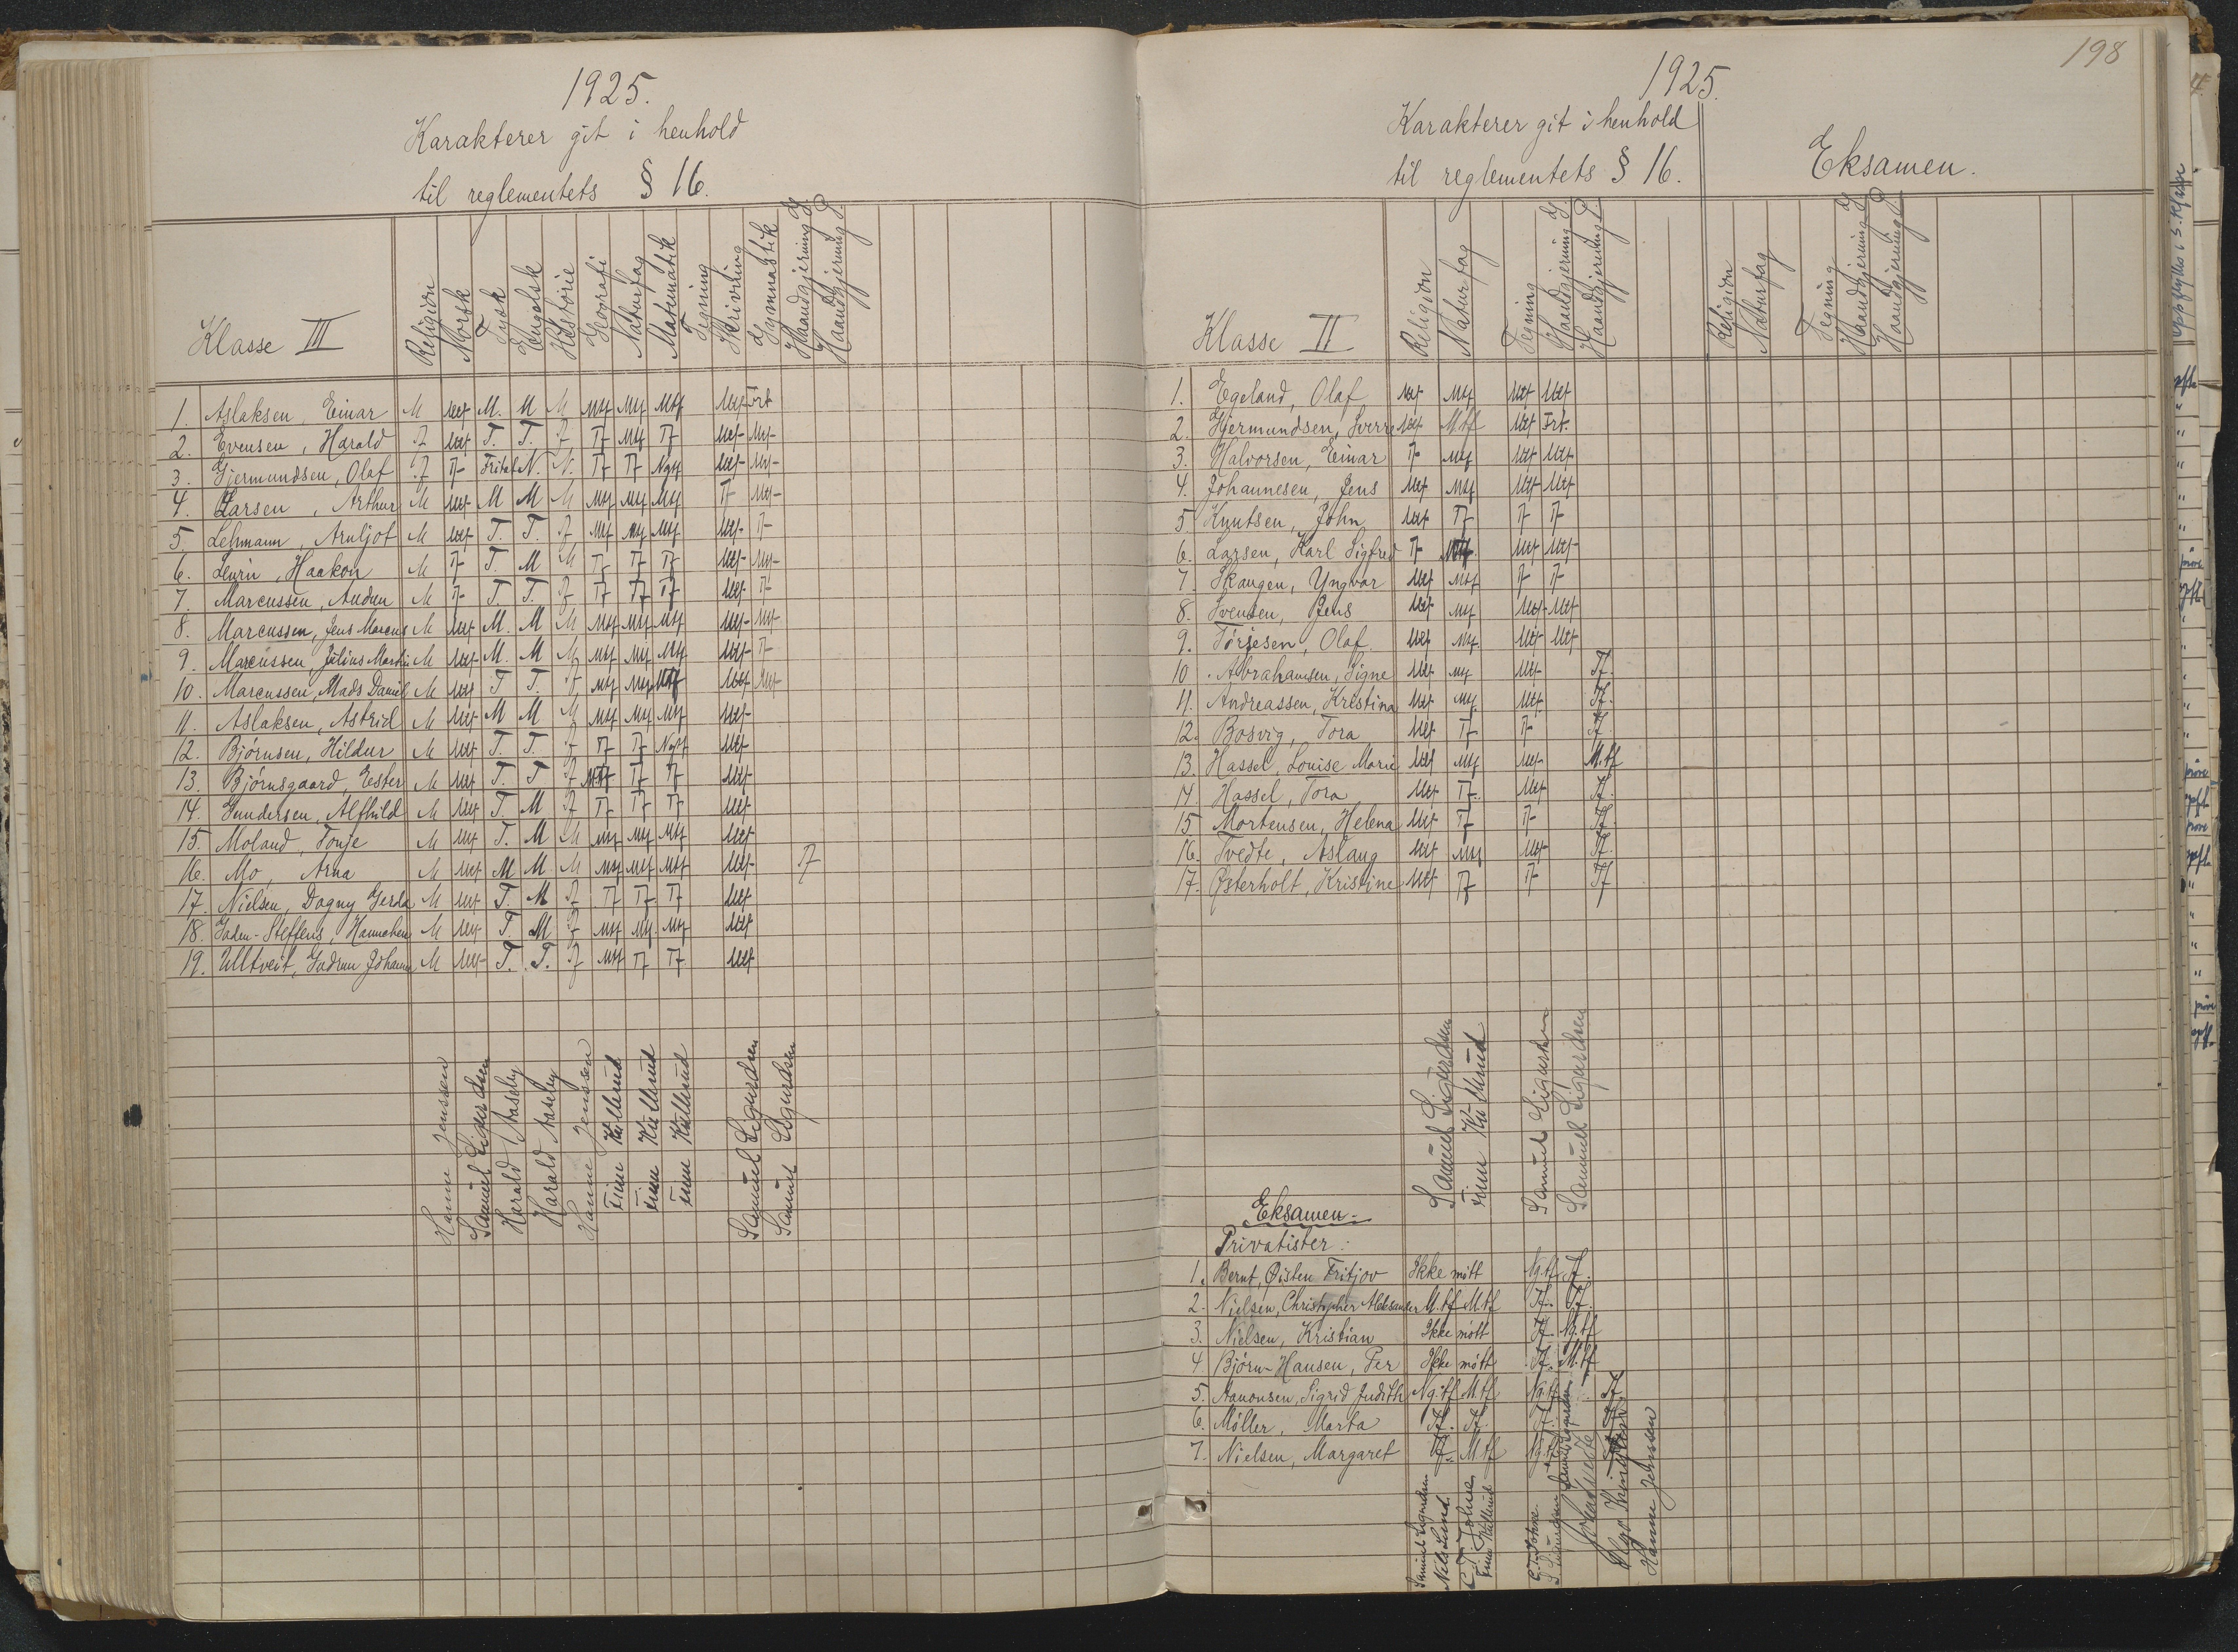 1925.
Karakterer git i henhold
til reglementets § 16.
Klasse III Religion Norsk Tysk Engelsk Historie Geografi Naturfag Matematik Tegning Skrivning Gymnastik Haandgjerning G. Haandgjerning P.
1. Aslaksen, Einar M Mtf M. M M Mtf Mtf Mtf Mtf Frt
2. Evensen, Harald T Mtf T. T. T Tf Mtf Tf Mtf Mtf
3. Gjermundsen, Olaf T Tf Fritat N. N. Tf Tf Ngtf Mtf Mtf
4. Larsen, Arthur M Mtf M M M Mtf Mtf Mtf Tf Mtf
5. Lehmann, Arnljot M Mtf T. T. T Mtf Mtf Mtf Mtf Tf
6. Levin, Haakon M Tf T. M M Tf Tf Tf Mtf Mtf
7. Marcussen, Audun M Tf T T. T Tf Tf Tf Mtf Tf
8. Marcussen, Jens Marcus M Mtf M. M M Mtf Mtf Mtf Mtf Mtf
9. Marcussen, Julius Martin M Mtf M. M M Mtf Mtf Mtf Mtf Tf
10. Marcussen, Mads Daniel M Mtf T T. T Mtf Mtf Mtf Mtf Mtf
11. Aslaksen, Astrid M Mtf M M M Mtf Mtf Mtf Mtf
12. Bjørnsen, Hildur M Mtf T. T. T Tf Tf Ngtf Mtf
13. Bjørnsgaard, Ester M Mtf T. T T Mtf Tf Tf Mtf
14. Gundersen, Alfhild M Mtf T. M T Tf Tf Tf Mtf
15. Moland, Tonje M Mtf T. M M Mtf Mtf Mtf Mtf
16. Mo, Arna M Mtf M M M Mtf Mtf Mtf Mtf Tf
17. Nielsen, Dagny Gerda M Mtf T. M T Tf Tf Tf Mtf
18. Steffens, Hannchen M Mtf T. M T Mtf Mtf Mtf Mtf
19. Ulltveit, Gudrun Johanne M Mtf T. T. T Mtf Tf Tf Mtf
Hanne Jenssen
Samuel Sigurdsen
Harald Aaseby
Harald Aaseby
Hanne Jenssen
Finn Kullerud
Finn Kullerud
Finn Kullerud
Samuel Sigurdsen
Samuel Sigurdsen
198
1925.
Karakterer git i henhold
til reglementets § 16.
Eksamen.
Klasse II Religion Naturfag Tegning Haandgjerning G. Haandgjerning P. Religion Naturfag Tegning Haandgjerning G. Haandgjerning P.
1. Egeland, Olaf Mtf Mtf Mtf Mtf
2. Gjermundsen, Sverre Mtf M.tf Mtf Frt.
3. Halvorsen, Einar Tf Mtf Mtf Mtf
4. Johannesen, Jens Mtf Mtf Mtf Mtf
5 Knutsen, John Mtf Tf Tf Tf
6. Larsen, Karl Sigfred Tf Mtf Mtf Mtf
7. Skaugen, Yngvar Mtf Mtf Tf Tf
8. Svendsen, Jens Mtf Mtf Mtf Mtf
9. Terjesen, Olaf Mtf Mtf Mtf Mtf
10. Abrahamsen, Signe Mtf Mtf Mtf Tf.
11. Andreassen, Kristina Mtf Mtf Mtf Tf.
12. Bosvig, Tora Mtf Tf Tf Tf
13. Hassel, Louise Marie Mtf Mtf Mtf M.tf
14. Hassel, Tora Mtf Tf. Mtf Tf.
15 Mortensen, Helena Mtf Tf Tf Tf.
16. Tvedte, Aslaug Mtf Mtf Mtf Tf.
17. Østerholt, Kristine Mtf Tf Tf Tf
Samuel Sigurdsen
Finn Kullerud
Samuel Sigurdsen
Samuel Sigurdsen
Eksamen
Privatister:
1. Bernt, Øisten Fritjov Ikke møtt Ng.tf Tf.
2. Nielsen, Christopher Aleksander M.tf M.tf Tf. Tf.
3. Nielsen, Kristian Ikke møtt Tf. Ng.tf
4 Bjørn-Hansen, Per Ikke møtt Tf. M.tf
5. Aanonsen, Sigrid Judith Ng.tf M.tf Ng.tf Tf
6. Møller, Marta Tf. Tf.
7. Nielsen, Margaret Tf. M.tf Ng.tf
Samuel Sigurdsen
Nils Lund.
Finn Kullerud
Hanne Jenssen